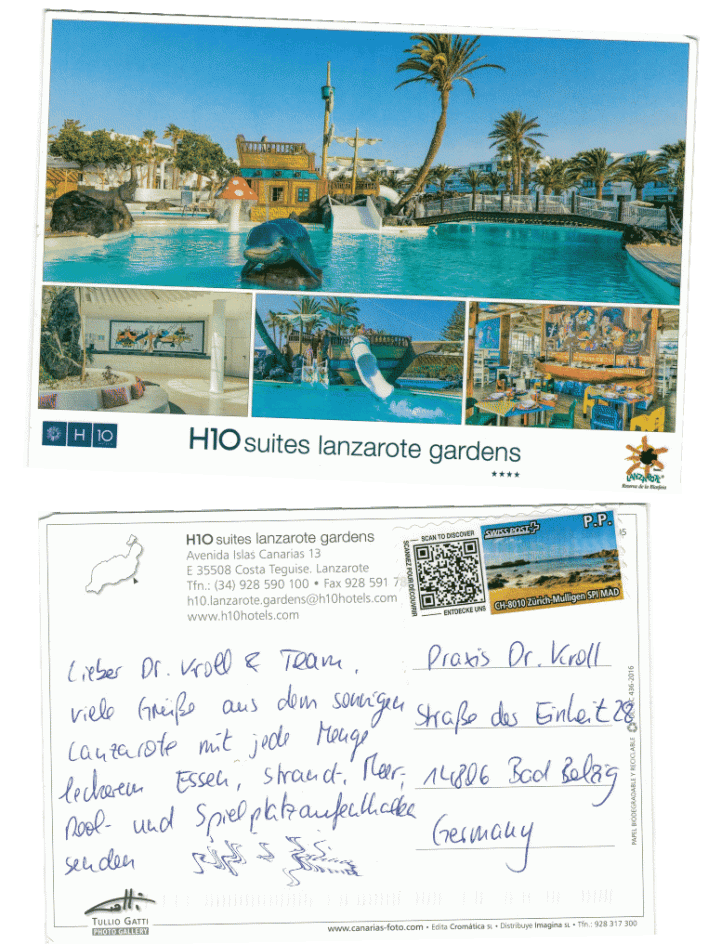 H10 suites lanzarote gardens
★★★★
H 10
LANZAROTE
Reserva de la Biosfera
H10 suites lanzarote gardens
Avenida Islas Canarias 13
E 35508 Costa Teguise. Lanzarote
Tfn.: (34) 928 590 100 • Fax 928 591 7
h10.lanzarote.gardens@h10hotels.com
www.h10hotels.com
SCAN TO DISCOVER
SCANNEZ POUR DÉCOUVRIR
ENTDECKE UNS
SWISS POST
P.P.
CH-8010 Zürich-Mülligen SPI MAD
Lieber Dr. Kroll & Team,
viele Grüße aus dem sonnigen
Lanzarote mit jede Menge
leckerem Essen, Strand-, Meer-,
Pool- und Spielplatzaufenthalten
senden
Praxis Dr. Kroll
Straße des Einheit 28
14806 Bad Belzig
Germany
436-2016
PAPEL BIODEGRADABLE Y RECICLABLE
TULLIO GATTI
PHOTO GALLERY
www.canarias-foto.com • Edita Cromática SL • Distribuye Imagina SL • Tfn.: 928 317 300